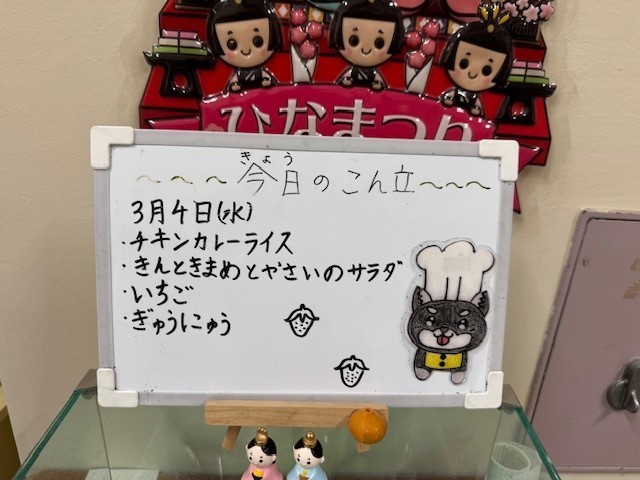 ひなまつり
きょう
～～～今日のこん立～～～
3月4日(水)
・チキンカレーライス
・きんときまめとやさいのサラダ
・いちご
・ぎゅうにゅう